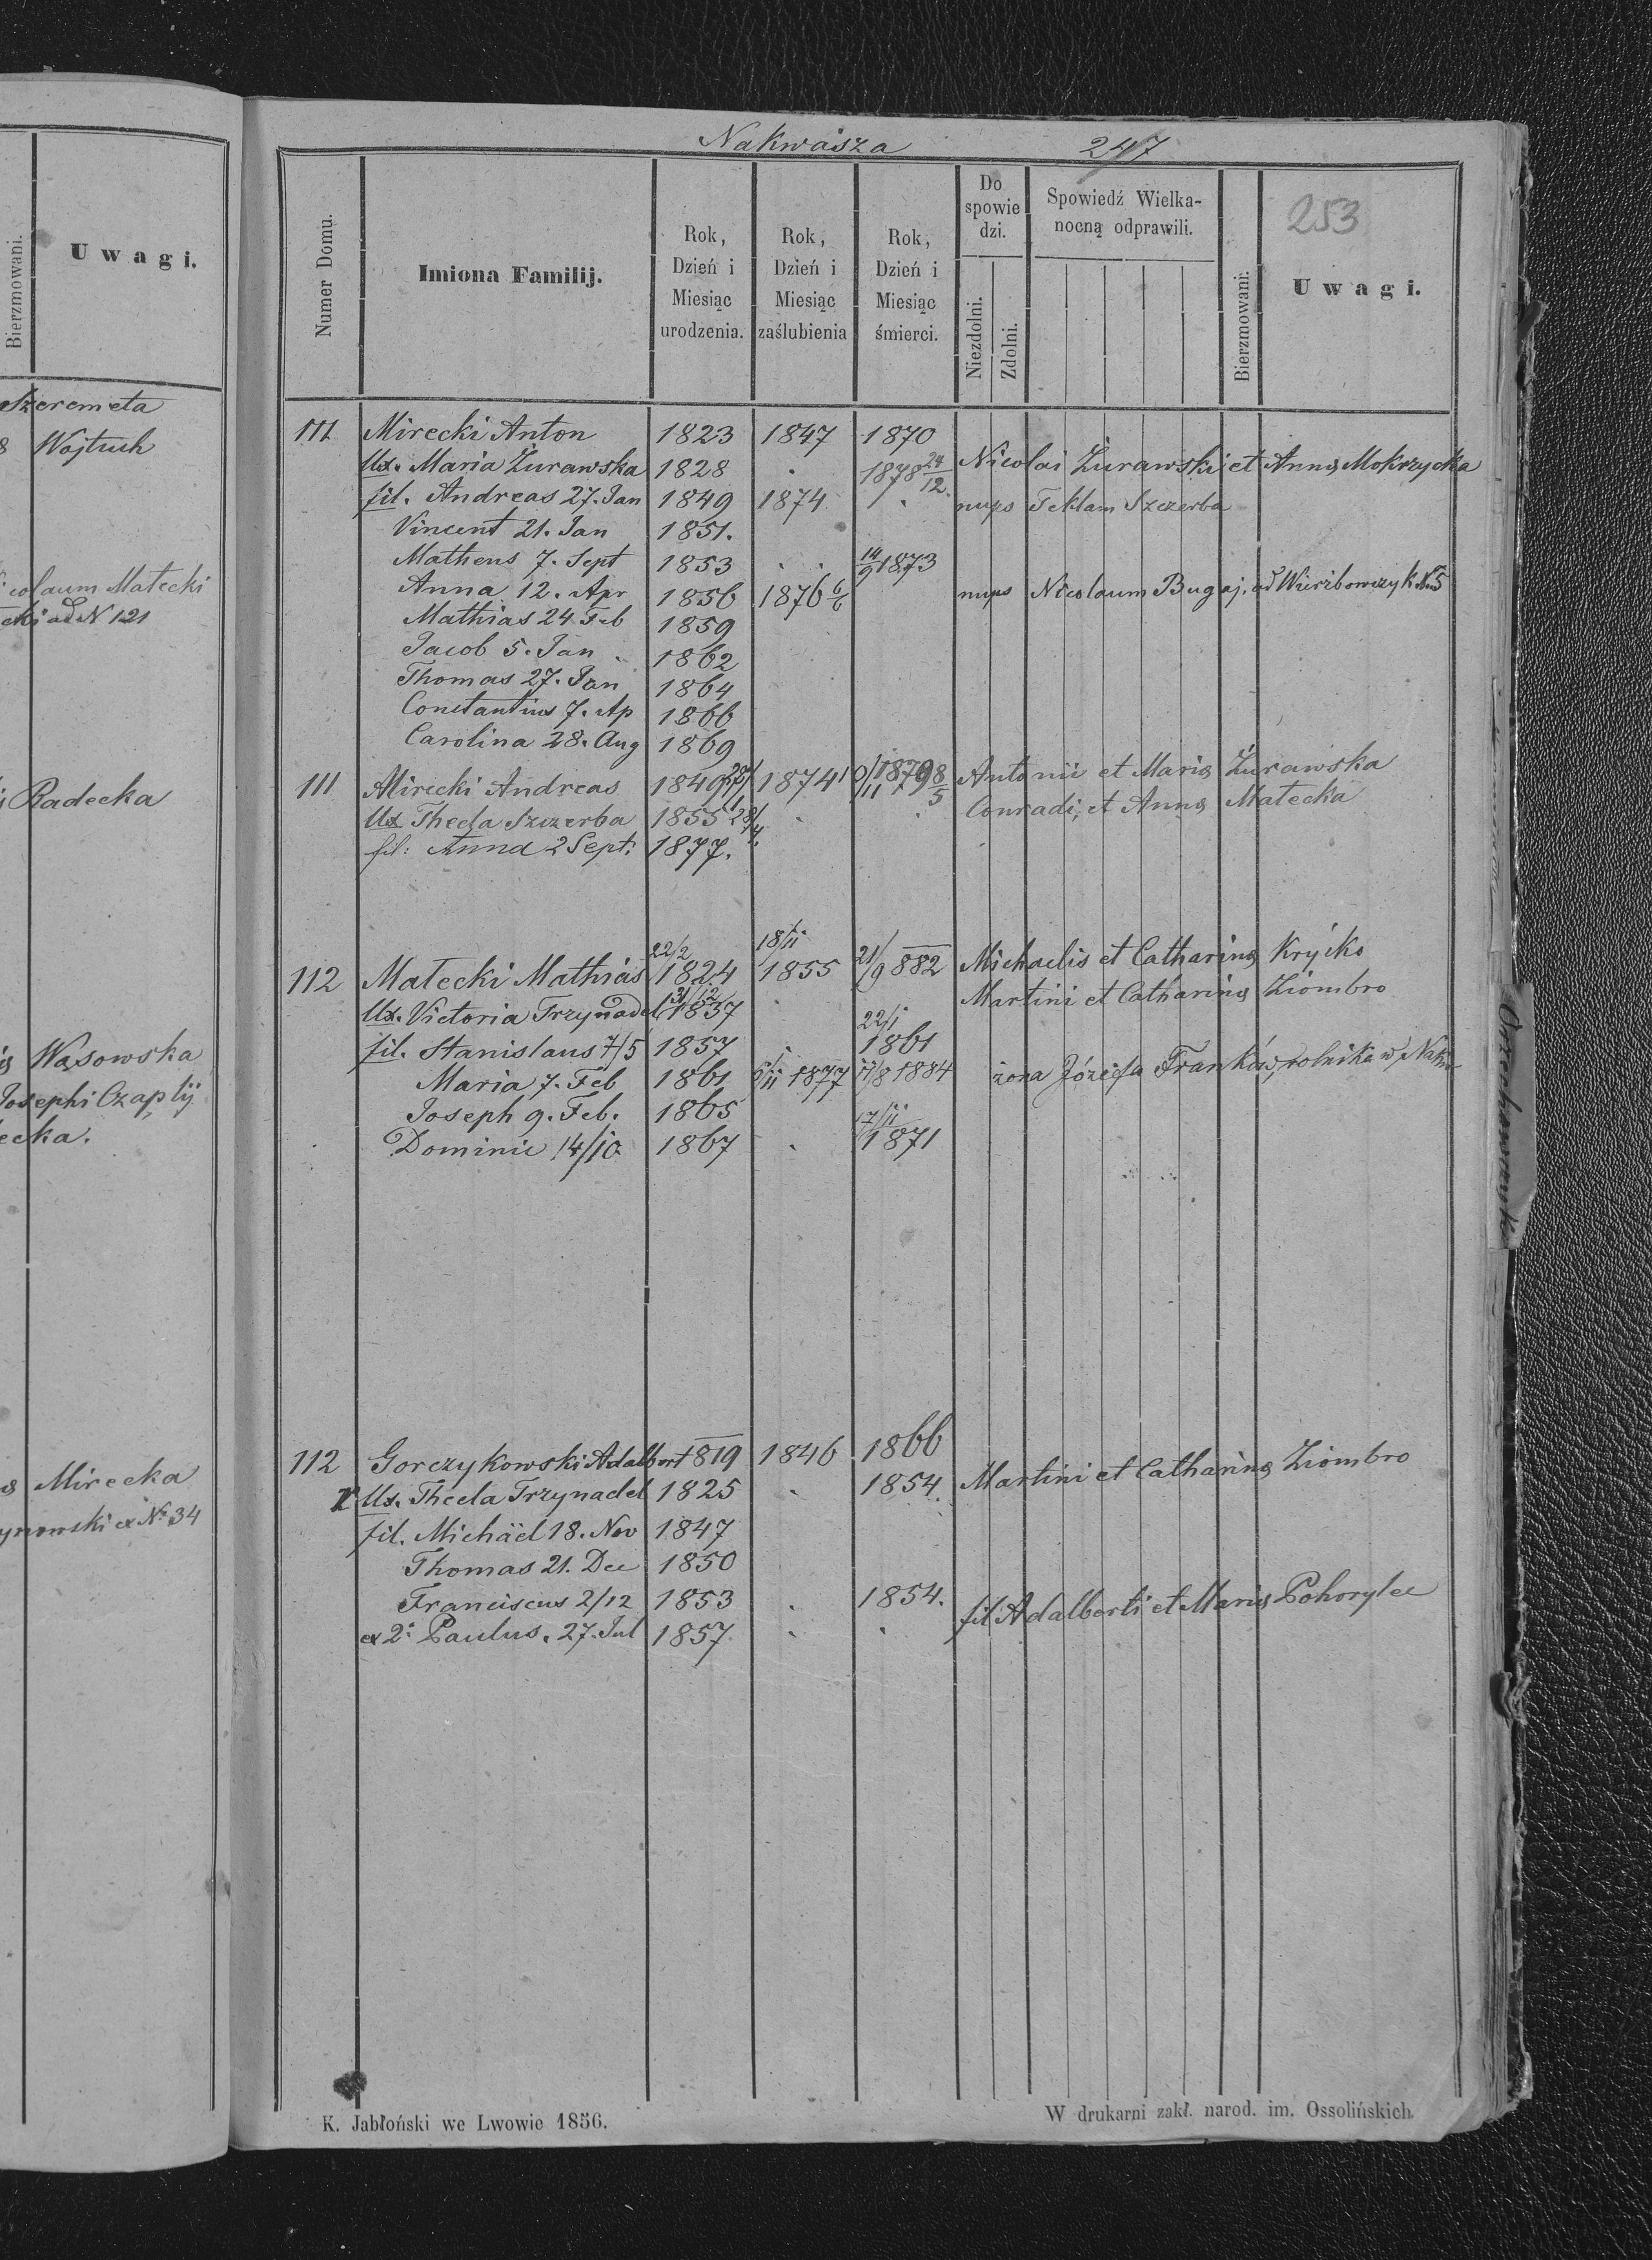 Bierzmowani.
U w a g i.
Szeremeta
8 Wojtuch
Nicolaum Małecki
ad N 121
Radecka
Wąsowska
Josephi Czaplij
Mirecka
ex N. 34
Nakwasza 247
253
Numer Domu.
Imiona Familij.
Rok, Dzień i Miesiąc urodzenia.
Rok, Dzień i Miesiąc zaślubienia
Rok, Dzień i Miesiąc śmierci.
Do spowie dzi.
Niezdolni.
Zdolni.
Spowiedź Wielka-
nocną odprawili.
Bierzmowani.
U w a g i.
111 Mirecki Anton 1823 1847 1870
Ux. Maria Żurawska 1828 . 1878 24/12. Nicolai Żurawski et Anna Mokrzycka
fil. Andreas 27. Jan 1849 1874 . nups Teklam Szczerba
Vincent 21. Jan 1851.
Matheus 7. Sept 1853 . . 14/9 1873
Anna 12. Apr 1856 1876 6/6 nups Nicolaum Bugaj. ad Wierzbowczyk No 5
Mathias 24 Feb 1859
Jacob 5. Jan 1862
Thomas 27. Jan 1864
Constantius 7. Ap 1866
Carolina 28. Aug 1869
111 Mirecki Andreas 1849 27/1 1874 10/11 1879 8/5 Antonii et Maria Żurawska
Ux Thecla Szczerba 1855 28/4. . . Conradi, et Anna Małecka
fil: Anna 2 Sept: 1877.
112 Małecki Mathias 22/2 1824 18/11 1855 21/9 882 Michaelis et Catharina Kryćko
Ux. Victoria Trzynadel 31/12 1837 . Martini et Catharina Ziombro
fil. Stanislaus 7/5 1857 . 22/1 1861
Maria 7. Feb 1861 6/11 1877 17/8 1884 żona Józefa Franków, rolnika w Nakw.
Joseph 9. Feb. 1865
Dominic 14/10 1867 . 17/11 1871
112 Gorczykowski Adalbert 1819 1846 1866
Ux. Thecla Trzynadel 1825 . 1854. Martini et Catharina Ziombro
fil. Michäel 18. Nov 1847
Thomas 21. Dec 1850
Franciscus 2/12 1853 . 1854. fil Adalberti et Maria Pohorylec
ex 2i Paulus. 27. Jul 1857. . .
K. Jabłoński we Lwowie 1856.
W drukarni zakł. narod. im. Ossolińskich.